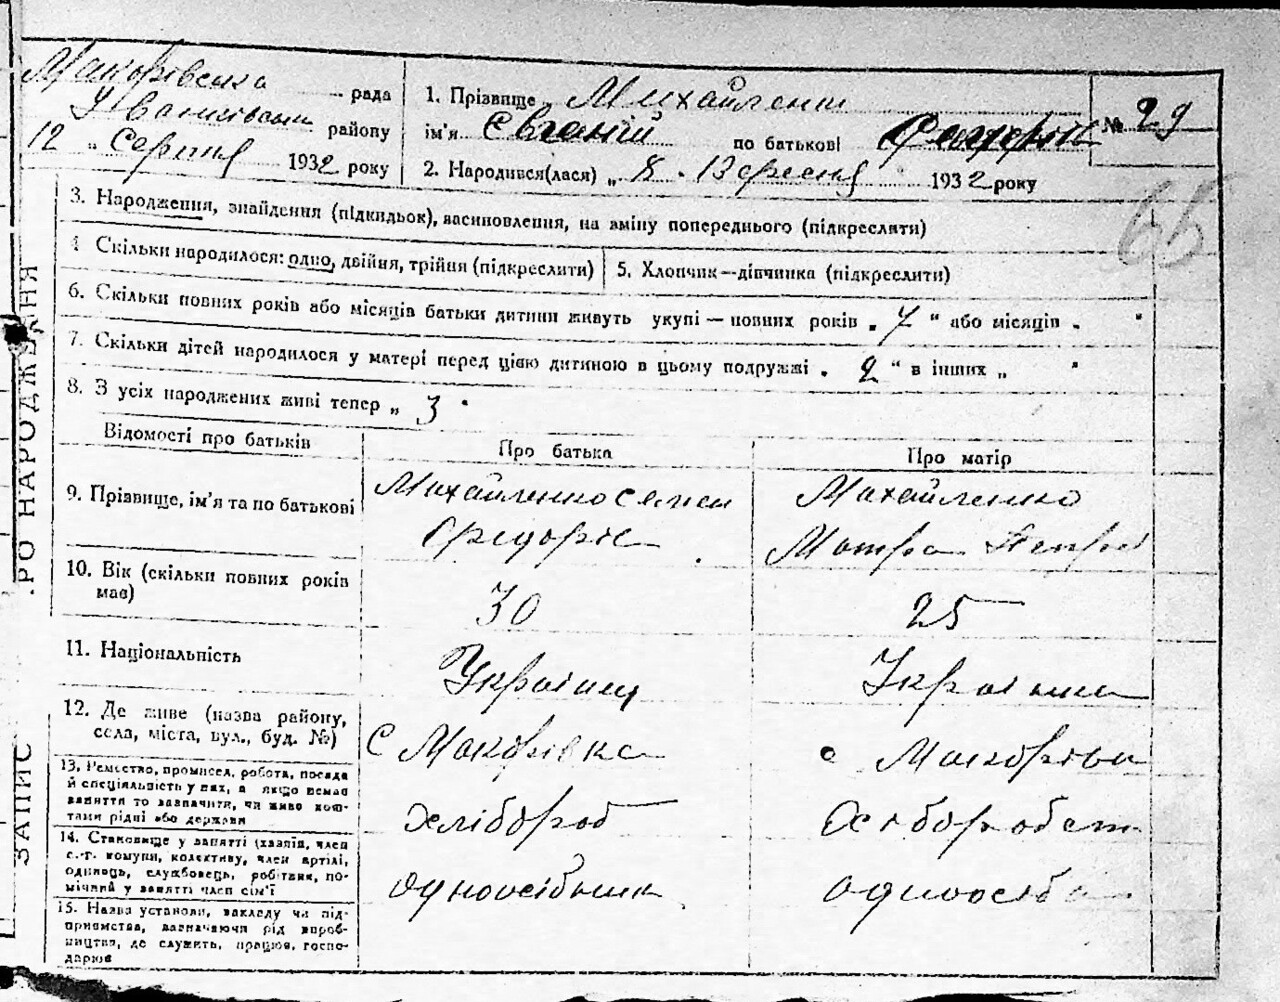 Макорівська рада
району
12 „ Серпня 1932 року
1. Прізвище Михайленко
ім'я Євгеній по батькові
2. Народився(лася) „ 8 . Вересня 1932 року
№ 29
66
3. Народження, знайдення (підкидьок), васиновлення, на зміну попереднього (підкреслити)
4 Скільки народилося: одно, двійня, трійня (підкреслити)
5. Хлопчик—дівчинка (підкреслити)
6. Скільки повних років або місяців батьки дитини живуть укупі — повних років „ 7 " або місяців „ "
7. Скільки дітей народилося у матері перед цією дитиною в цьому подружжі „ 2 " в інших „ "
8. З усіх народжених живі тепер „ 3 "
Відомості про батьків
Про батька
Про матір
9. Прізвище, ім'я та по батькові
Михайленко
Федоров
Михайленко
Мотря
10. Вік (скільки повних років
має)
30
25
11. Національність
Українец
Українка
12. Де живе (назва району,
села, міста, вул., буд. №)
с Макорівка
с Макорівка
13. Ремество, промисел, робота, посада
й спеціяльність у них, а якщо немає
заняття то зазначити, чи живе кош-
тами рідні або держави
хлібороб
14. Становище у занятті (хазяїн, член
с.-г. комуни, колективу, член артілі,
одинець, службовець, робітник, по-
мічний у занятті член сім'ї
одноосібник
одноосібн
15. Назва установи, закладу чи під-
приємства, зазначаючи рід вироб-
ництва, де служить, працює, госпо-
дарює
ЗАПИС ПРО НАРОДЖЕННЯ